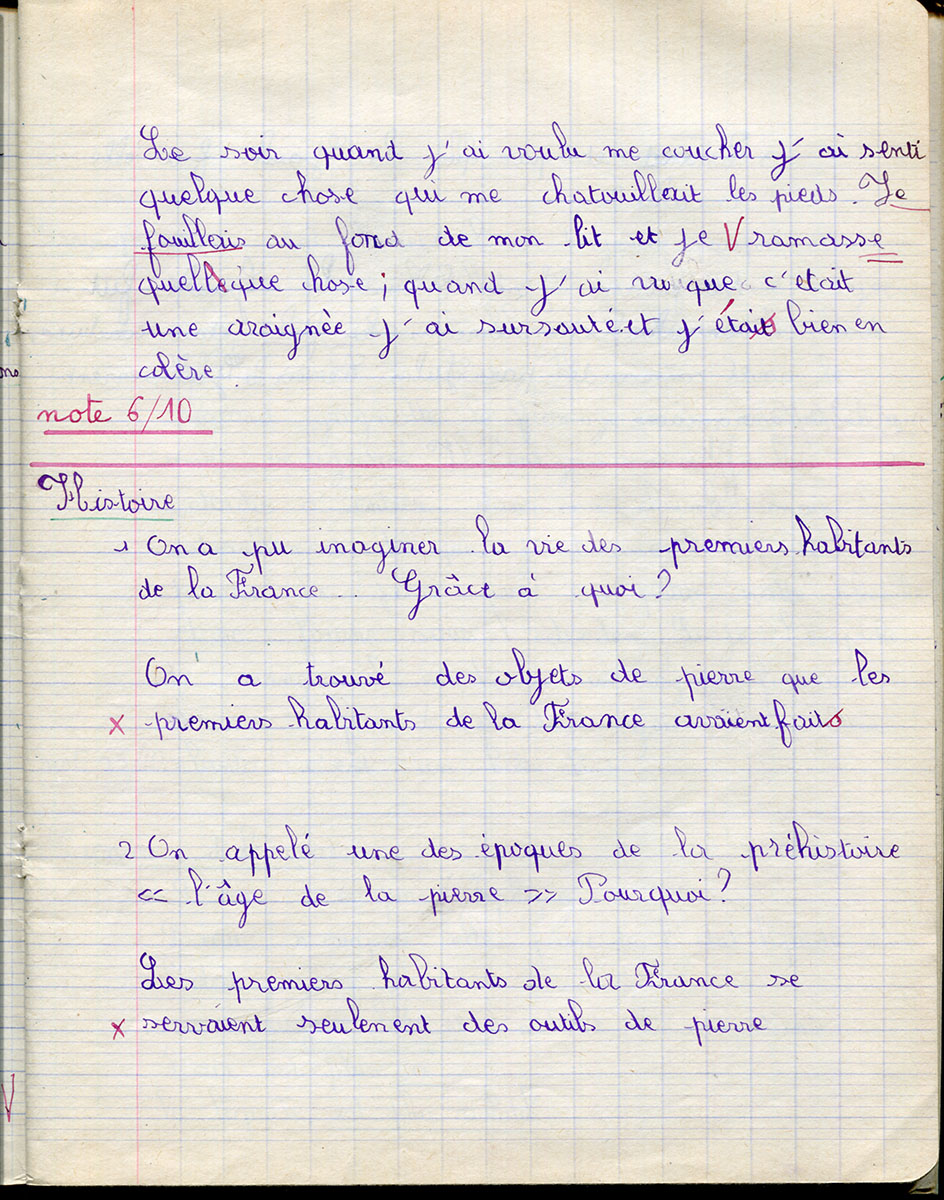 Le soir quand j'ai voulu me coucher j'ai senti
quelque chose qui me chatouillait les pieds. Je
fouillais au fond de mon lit et je V ramasse
quelque chose ; quand j'ai vu que c'etait
une araignèe j'ai sursauté et j'étais bien en
colère
note 6/10
Histoire
1 On a pu imaginer la vie des premiers habitants
de la France.. Grâce à quoi ?
On a trouvé des objets de pierre que les
x premiers habitants de la France avaient faits
2 On appelé une des époques de la préhistoire
<< l'âge de la pierre >> Pourquoi ?
Les premiers habitants de la France se
x servaient seulement des outils de pierre